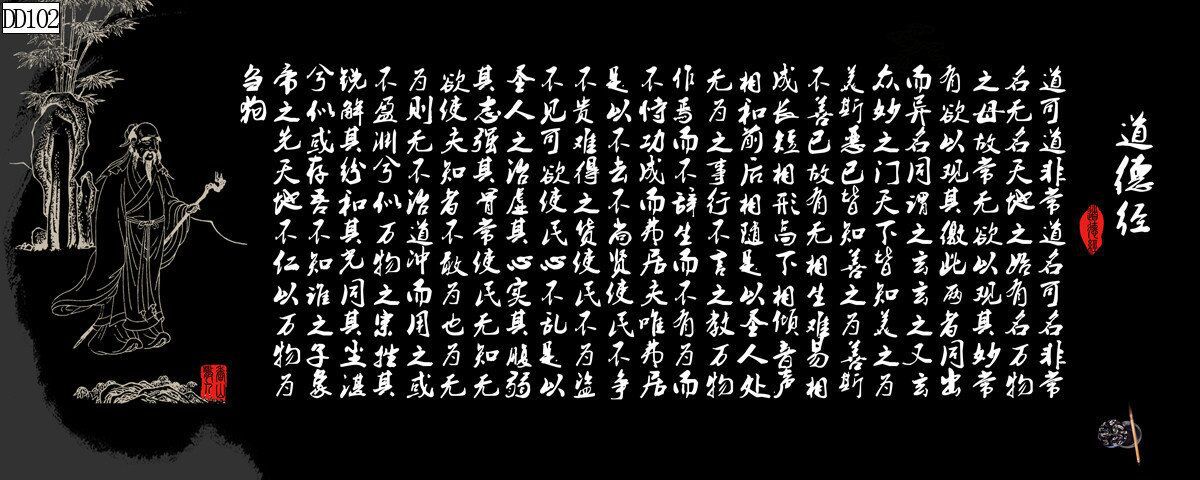 DD102
道德经
道可道非常道名可名非常
名无名天地之始有名万物
之母故常无欲以观其妙常
有欲以观其徼此两者同出
而异名同谓之玄玄之又玄
众妙之门天下皆知美之为
美斯恶已皆知善之为善斯
不善已故有无相生难易相
成长短相形高下相倾音声
相和前后相随是以圣人处
无为之事行不言之教万物
作焉而不辞生而不有为而
不恃功成而弗居夫唯弗居
是以不去不尚贤使民不争
不贵难得之货使民不为盗
不见可欲使民心不乱是以
圣人之治虚其心实其腹弱
其志强其骨常使民无知无
欲使夫知者不敢为也为无
为则无不治道冲而用之或
不盈渊兮似万物之宗挫其
锐解其纷和其光同其尘湛
兮似或存吾不知谁之子象
帝之先天地不仁以万物为
刍狗